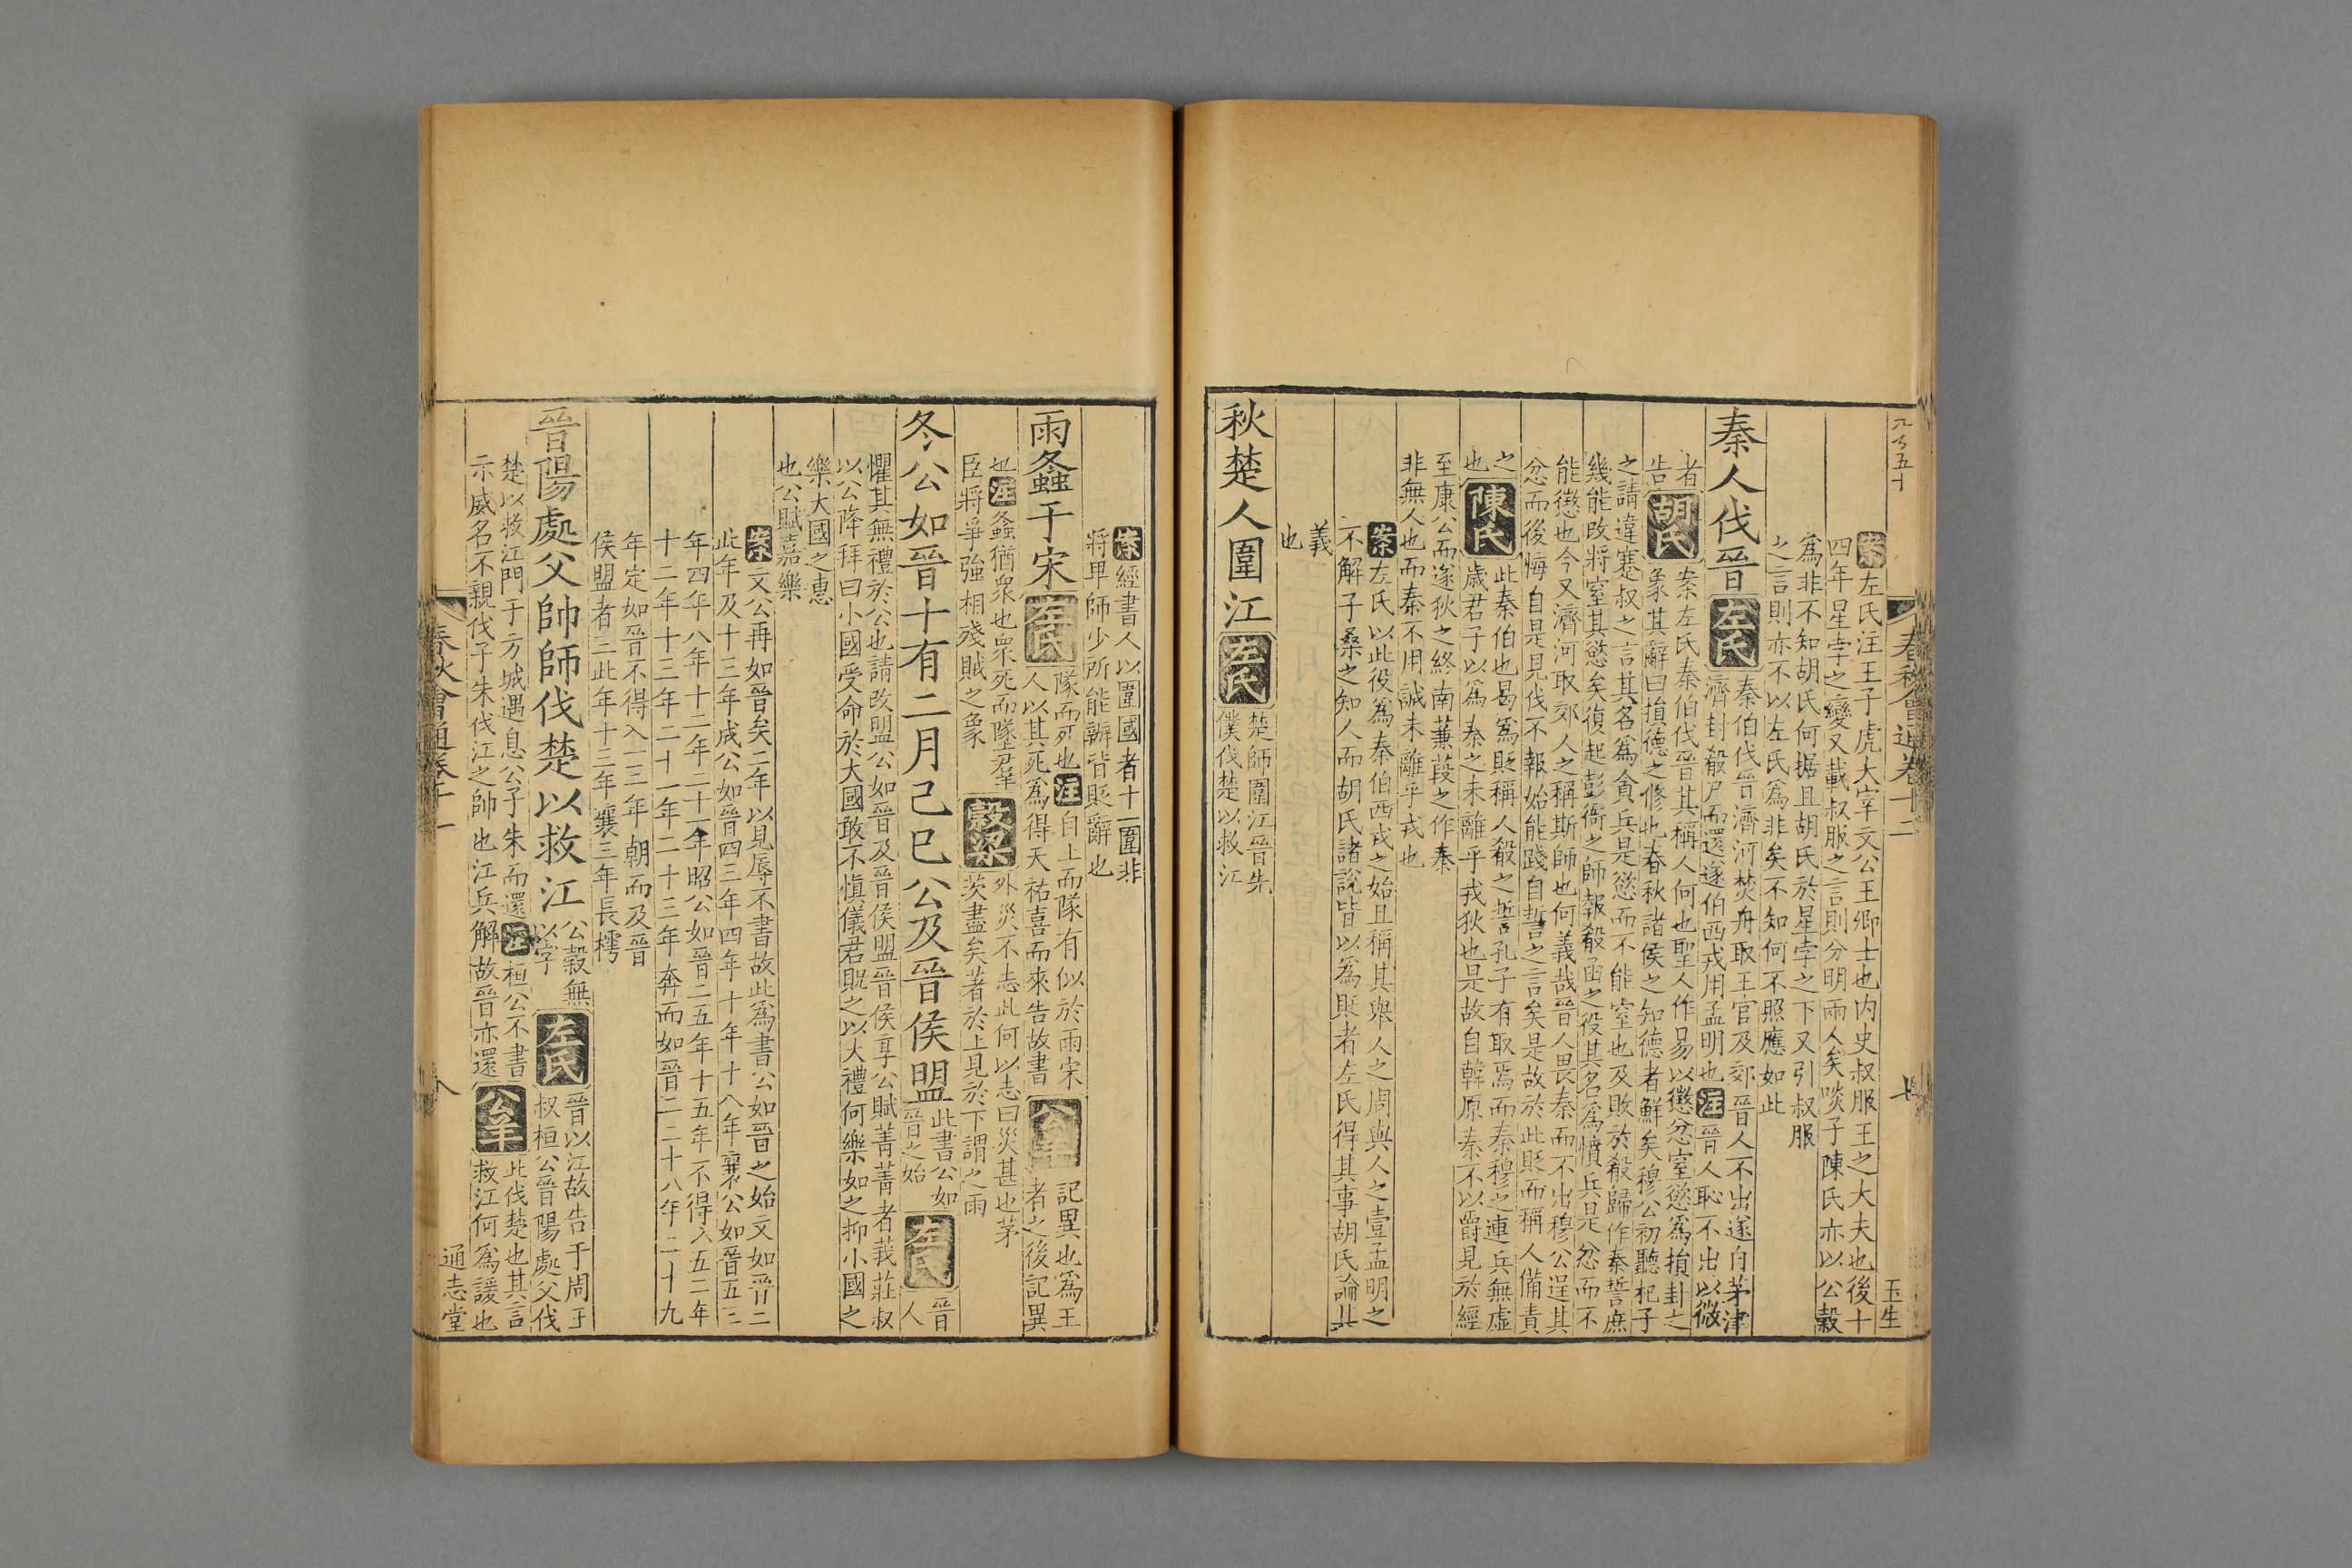 春秋會通卷十二 七 玉生
案左氏注王子虎大宰文公王卿士也内史叔服王之大夫也後十
四年星孛之變又載叔服之言則分明兩人矣啖子陳氏亦以公穀
爲非不知胡氏何据且胡氏於星孛之下又引叔服
之言則亦不以左氏爲非矣不知何不照應如此
秦人伐晉左氏
秦伯伐晉濟河焚舟取王官及郊晉人不出遂自茅津
濟封殽尸而還遂伯西戎用孟明也注晉人恥不出以微
者
告胡氏
案左氏秦伯伐晉其稱人何也聖人作易以懲忿窒慾爲損卦之
象其辭曰損德之修也春秋諸侯之知德者鮮矣穆公初聽杞子
之請違蹇叔之言其名爲貪兵是慾而不能窒也及敗於殽歸作秦誓庶
幾能改將窒其慾矣復起彭衙之師報殽函之役其名爲憤兵是忿而不
能懲也今又濟河取郊人之稱斯師也何義哉晉人畏秦而不出穆公逞其
忿而後悔自是見伐不報始能踐自誓之言矣是故於此貶而稱人備責
之
也陳氏
此秦伯也曷爲貶稱人殽之誓孔子有取焉而秦穆之連兵無虛
歲君子以爲秦之未離乎戎狄也是故自韓原秦不以爵見於經
至康公而遂狄之終南蒹葭之作秦
非無人也而秦不用誠未離乎戎也
案左氏以此役爲秦伯西戎之始且稱其舉人之周與人之壹孟明之
不解子桑之知人而胡氏諸說皆以爲貶者左氏得其事胡氏論其
義
也
秋楚人圍江左氏
楚師圍江晉先
僕伐楚以救江
案經書人以圍國者十一圍非
將卑師少所能辦皆貶辭也
雨螽于宋左氏
隊而死也注自上而隊有似於雨宋
人以其死爲得天祐喜而來告故書公羊
記異也爲王
者之後記異
也注螽猶衆也衆死而墜羣
臣將爭強相殘賊之象穀梁
外災不志此何以志曰災甚也茅
茨盡矣著於上見於下謂之雨
冬公如晉十有二月己巳公及晉侯盟
此書公如
晉之始左氏
晉
人
懼其無禮於公也請改盟公如晉及晉侯盟晉侯享公賦菁菁者莪莊叔
以公降拜曰小國受命於大國敢不愼儀君貺之以大禮何樂如之抑小國之
樂大國之惠
也公賦嘉樂
案文公再如晉矣二年以見辱不書故此爲書公如晉之始文如晉二
此年及十三年成公如晉四三年四年十年十八年襄公如晉五三
年四年八年十二年二十一年昭公如晉二五年十五年不得入五二年
十二年十三年二十一年二十三年奔而如晉二二十八年二十九
年定如晉不得入一三年朝而及晉
侯盟者二此年十三年襄三年長樗
晉陽處父帥師伐楚以救江
公穀無
以字左氏
晉以江故告于周王
叔桓公晉陽處父伐
楚以救江門于方城遇息公子朱而還注桓公不書
示威名不親伐子朱伐江之帥也江兵解故晉亦還公羊
此伐楚也其言
救江何爲諼也
春秋會通卷 八 通志堂